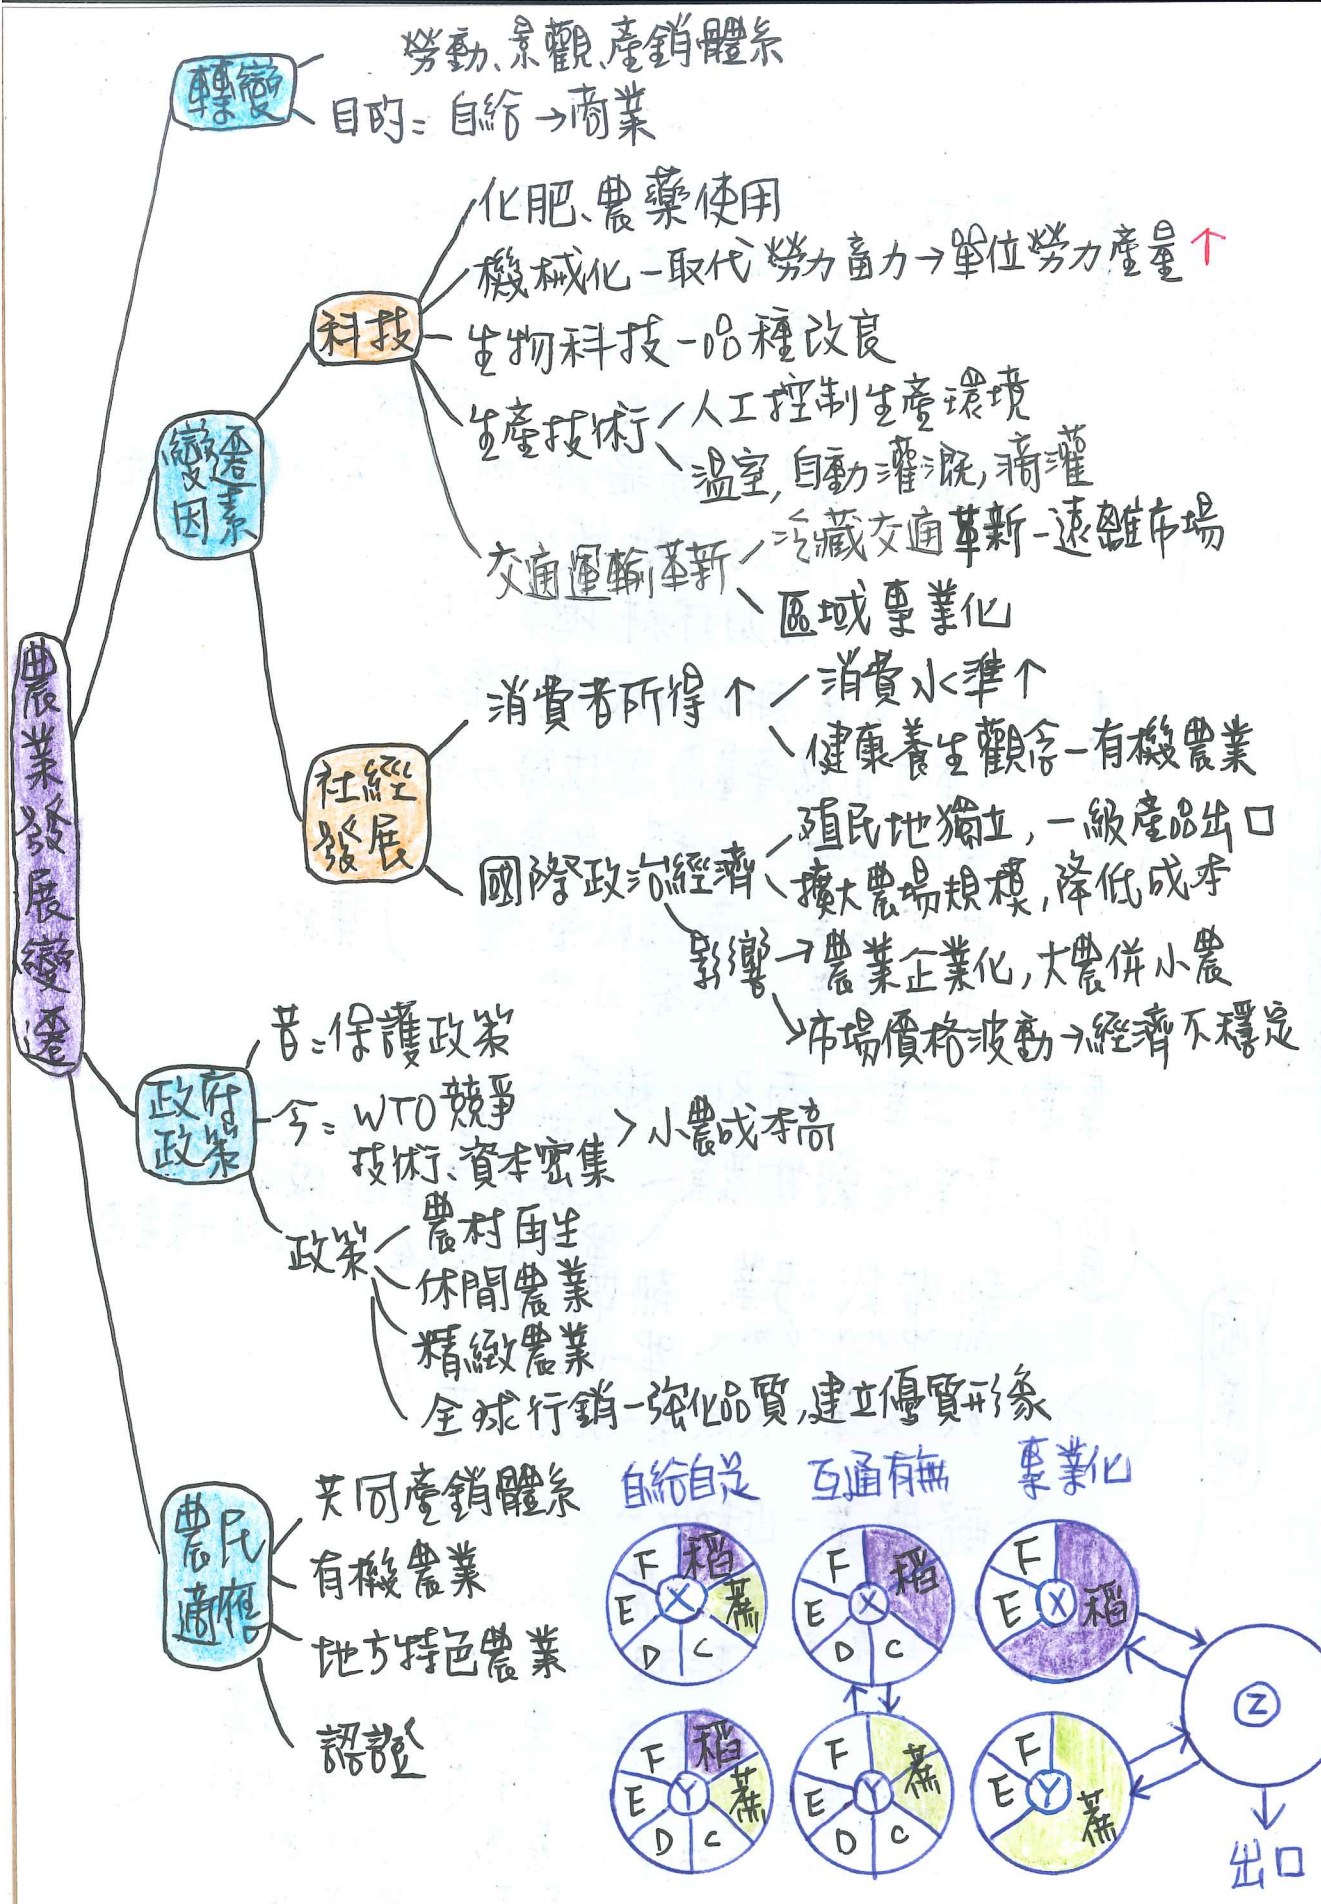 農業發展變遷
轉變
勞動、景觀、產銷體系
目的=自給→商業
變遷因素
科技
化肥、農藥使用
機械化-取代勞力畜力→單位勞力產量↑
生物科技-品種改良
生產技術
人工控制生產環境
溫室,自動灌溉,滴灌
交通運輸革新
冷藏交通革新-遠離市場
區域專業化
社經發展
消費者所得↑
消費水準↑
健康養生觀念-有機農業
國際政治經濟
殖民地獨立,一級產品出口
擴大農場規模,降低成本
影響→農業企業化,大農併小農
市場價格波動→經濟不穩定
政府政策
昔=保護政策
今=WTO競爭
技術、資本密集
>小農成本高
政策
農村再生
休閒農業
精緻農業
全球行銷-強化品質,建立優質形象
農民適應
共同產銷體系
有機農業
地方特色農業
認證
自給自足 互通有無 專業化
F 稻 蔗 C D E X
F 稻 C D E X
F 稻 E X
F 稻 蔗 C D E Y
F 蔗 C D E Y
F 蔗 E Y
Z
出口